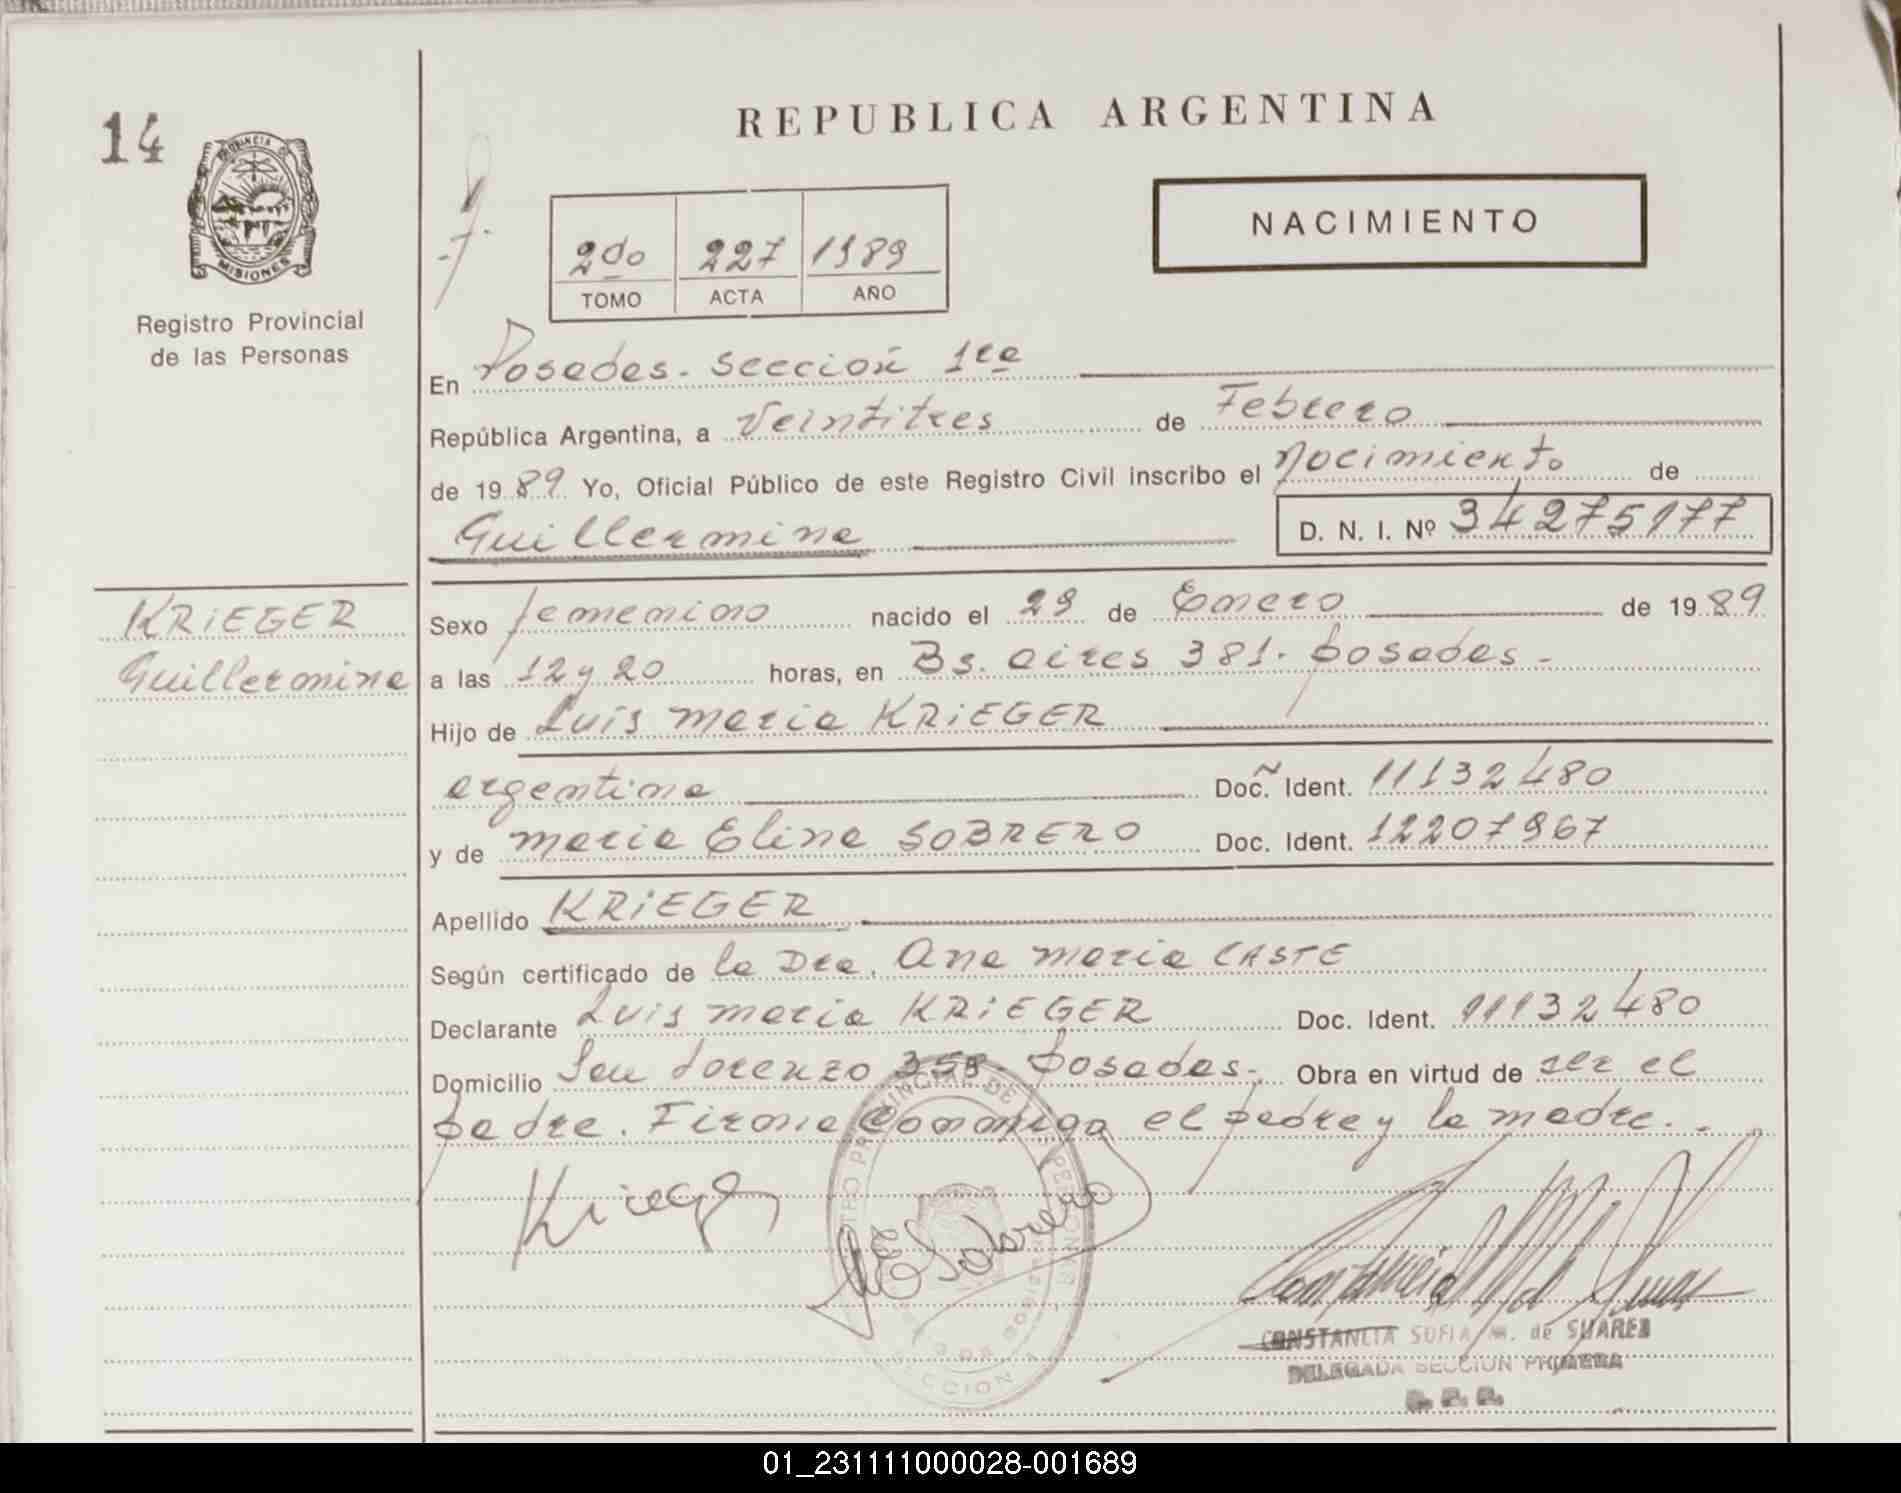 REPUBLICA ARGENTINA
14
PROVINCIA DE
MISIONES
Registro Provincial
de las Personas
2do 227 1989
TOMO ACTA AÑO
NACIMIENTO
En Posadas. Sección 1ra
República Argentina, a Veintitres de Febrero
de 1989 Yo, Oficial Público de este Registro Civil inscribo el nacimiento de
Guillermina D. N. I. Nº 34275177
KRiEGER
Guillermina
Sexo femenino nacido el 29 de Enero de 1989
a las 12 y 20 horas, en Bs. aires 381. posadas -
Hijo de Luis maria KRiEGER
argentina Doc. Ident. 11132480
y de maria Elina SOBRERO Doc. Ident. 12207967
Apellido KRiEGER
Según certificado de la Dra. Ana maria CASTE
Declarante Luis maria KRiEGER Doc. Ident. 11132480
Domicilio San Lorenzo 358. posadas. Obra en virtud de ser el
padre. Firma Conmigo el padre y la madre.
Krieger
MESobrero
CONSTANCIA SOFIA M. de SUAREZ
DELEGADA SECCION PRIMERA
01_231111000028-001689